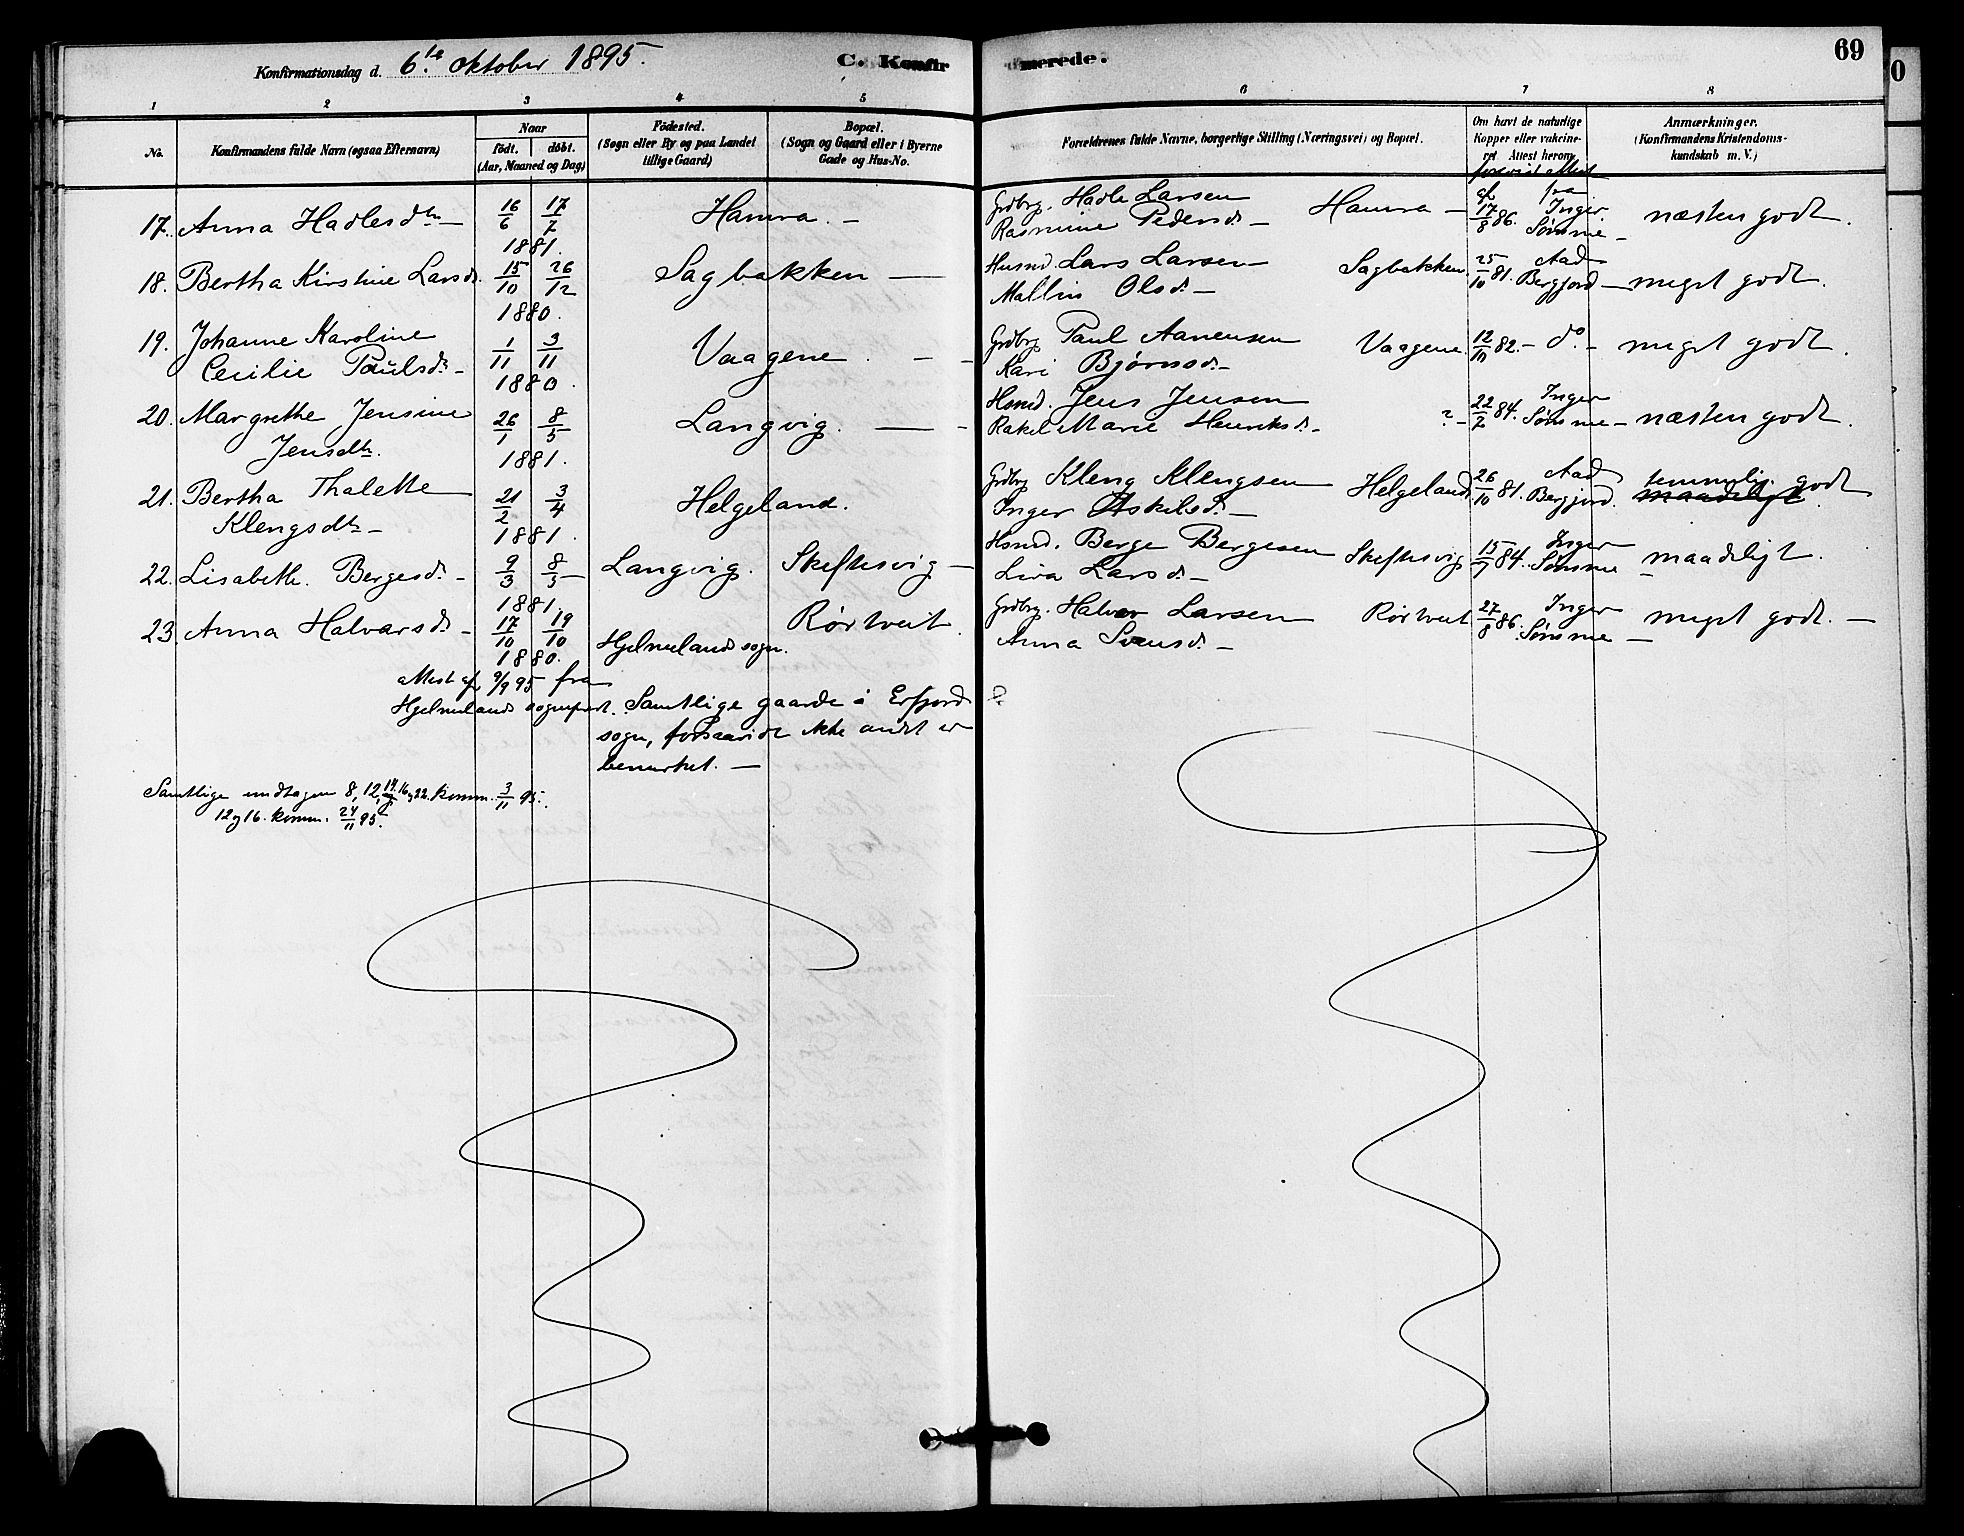 Konfirmationsdag d. 6.te oktober 1895.
C. Konfirmerede.
69
0
1 2 3 4 5 6 7 8
No.
Konfirmandens fulde Navn (ogsaa Efternavn)
Naar
født. døbt.
(Aar, Maaned og Dag)
Fødested.
(Sogn eller By og paa Landet
tillige Gaard)
Bopæl.
(Sogn og Gaard eller i Byerne
Gade og Hus-No.
Forældrenes fulde Navne, borgerlige Stilling (Næringsvei) og Bopæl.
Om havt de naturlige
Kopper eller vakcine-
ret Attest herom.
Anmærkninger.
(Konfirmandens Kristendoms-
kundskab m. V.)
17. Anna Hadlesdtr – 16/6 17/7 1881. Hamra. – Grdbrg. Hadle Larsen Hamra – forevist attest af fra 17/8 86. Inger Sømme – næsten godt.
Rasmine Pedersd. –
18. Bertha Kirstine Larsd. 15/10 26/12 1880. Sagbakken — Husmd. Lars Larsen Sagbakken. 25/10 81. Aad Bergfjord – meget godt.
Mallin Olsd. –
19. Johanne Karoline 1/11 3/11 1880. Vaagene. – – Grdbrg Paul Aanensen Vaagene. 12/10 82. – do – meget godt.
Cecilie Paulsd. – Kari Bjørnsd. –
20. Margrethe Jensine 26/1 8/5 1881. Langvig. — – Hsmd. Jens Jensen ? – 22/7 84. Inger Sømme – næsten godt.
Jensdtr. Rakel Marie Henriksd. –
21. Bertha Thalette 21/2 3/4 1881. Helgeland. Grdbrg Kleng Klengsen Helgeland. 26/10 81. Aad Bergfjord. temmelig godt
Klengsdtr – Inger Askilsd. – maadeligt.
22. Lisabeth. Bergesd. – 9/3 8/5 1881. Langvig. Skeftesvig – Hsmd. Berge Bergesen Skeftesvig 15/7 84. Inger Sømme – maadeligt.
Liva Larsd. –
23. Anna Halvarsd. – 17/10 19/10 1880. Hjelmelands sogn. Rørtveit. Grdbrg. Halvor Larsen Rørtveit 27/8 86. Inger Sømme – meget godt. –
Anna Svensd. –
attest af 9/9 95 fra
Hjelmelands sognepræst. Samtlige gaarde i Erfjord
sogn, forsaavidt ikke andet er
bemerket. –
Samtlige undtagen 8, 12, 14, 16 og 22. komm. 3/11 95.
12 og 16. komm. 24/11 95.